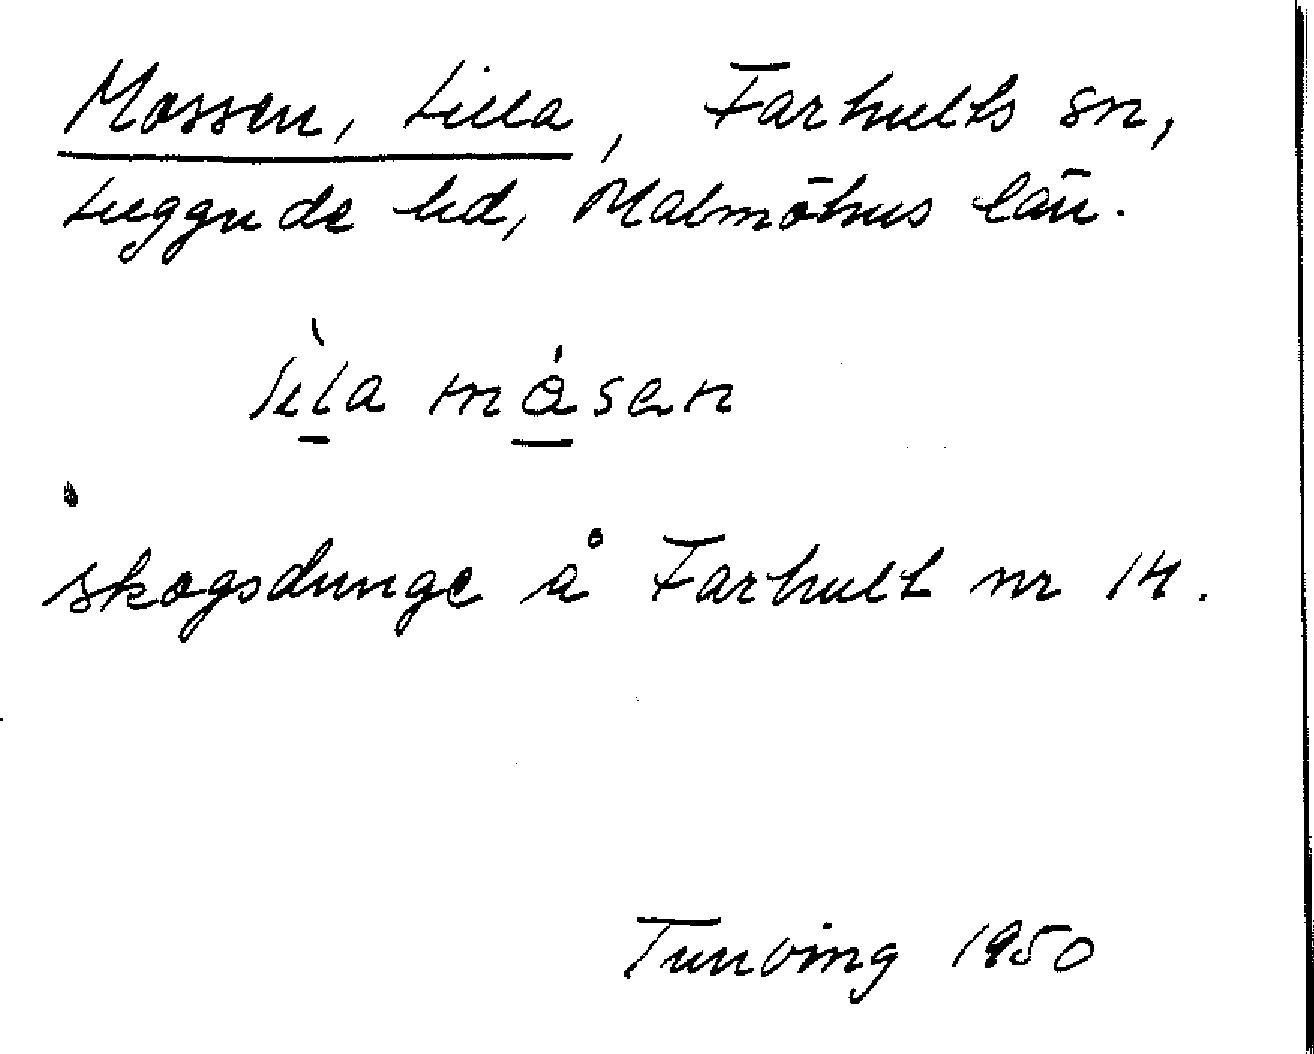 Mossen, Lilla, Farhults sn,
Luggude hd, Malmöhus län.
lìla måsen
skogsdunge å Farhult nr 14.
Tunving 1950